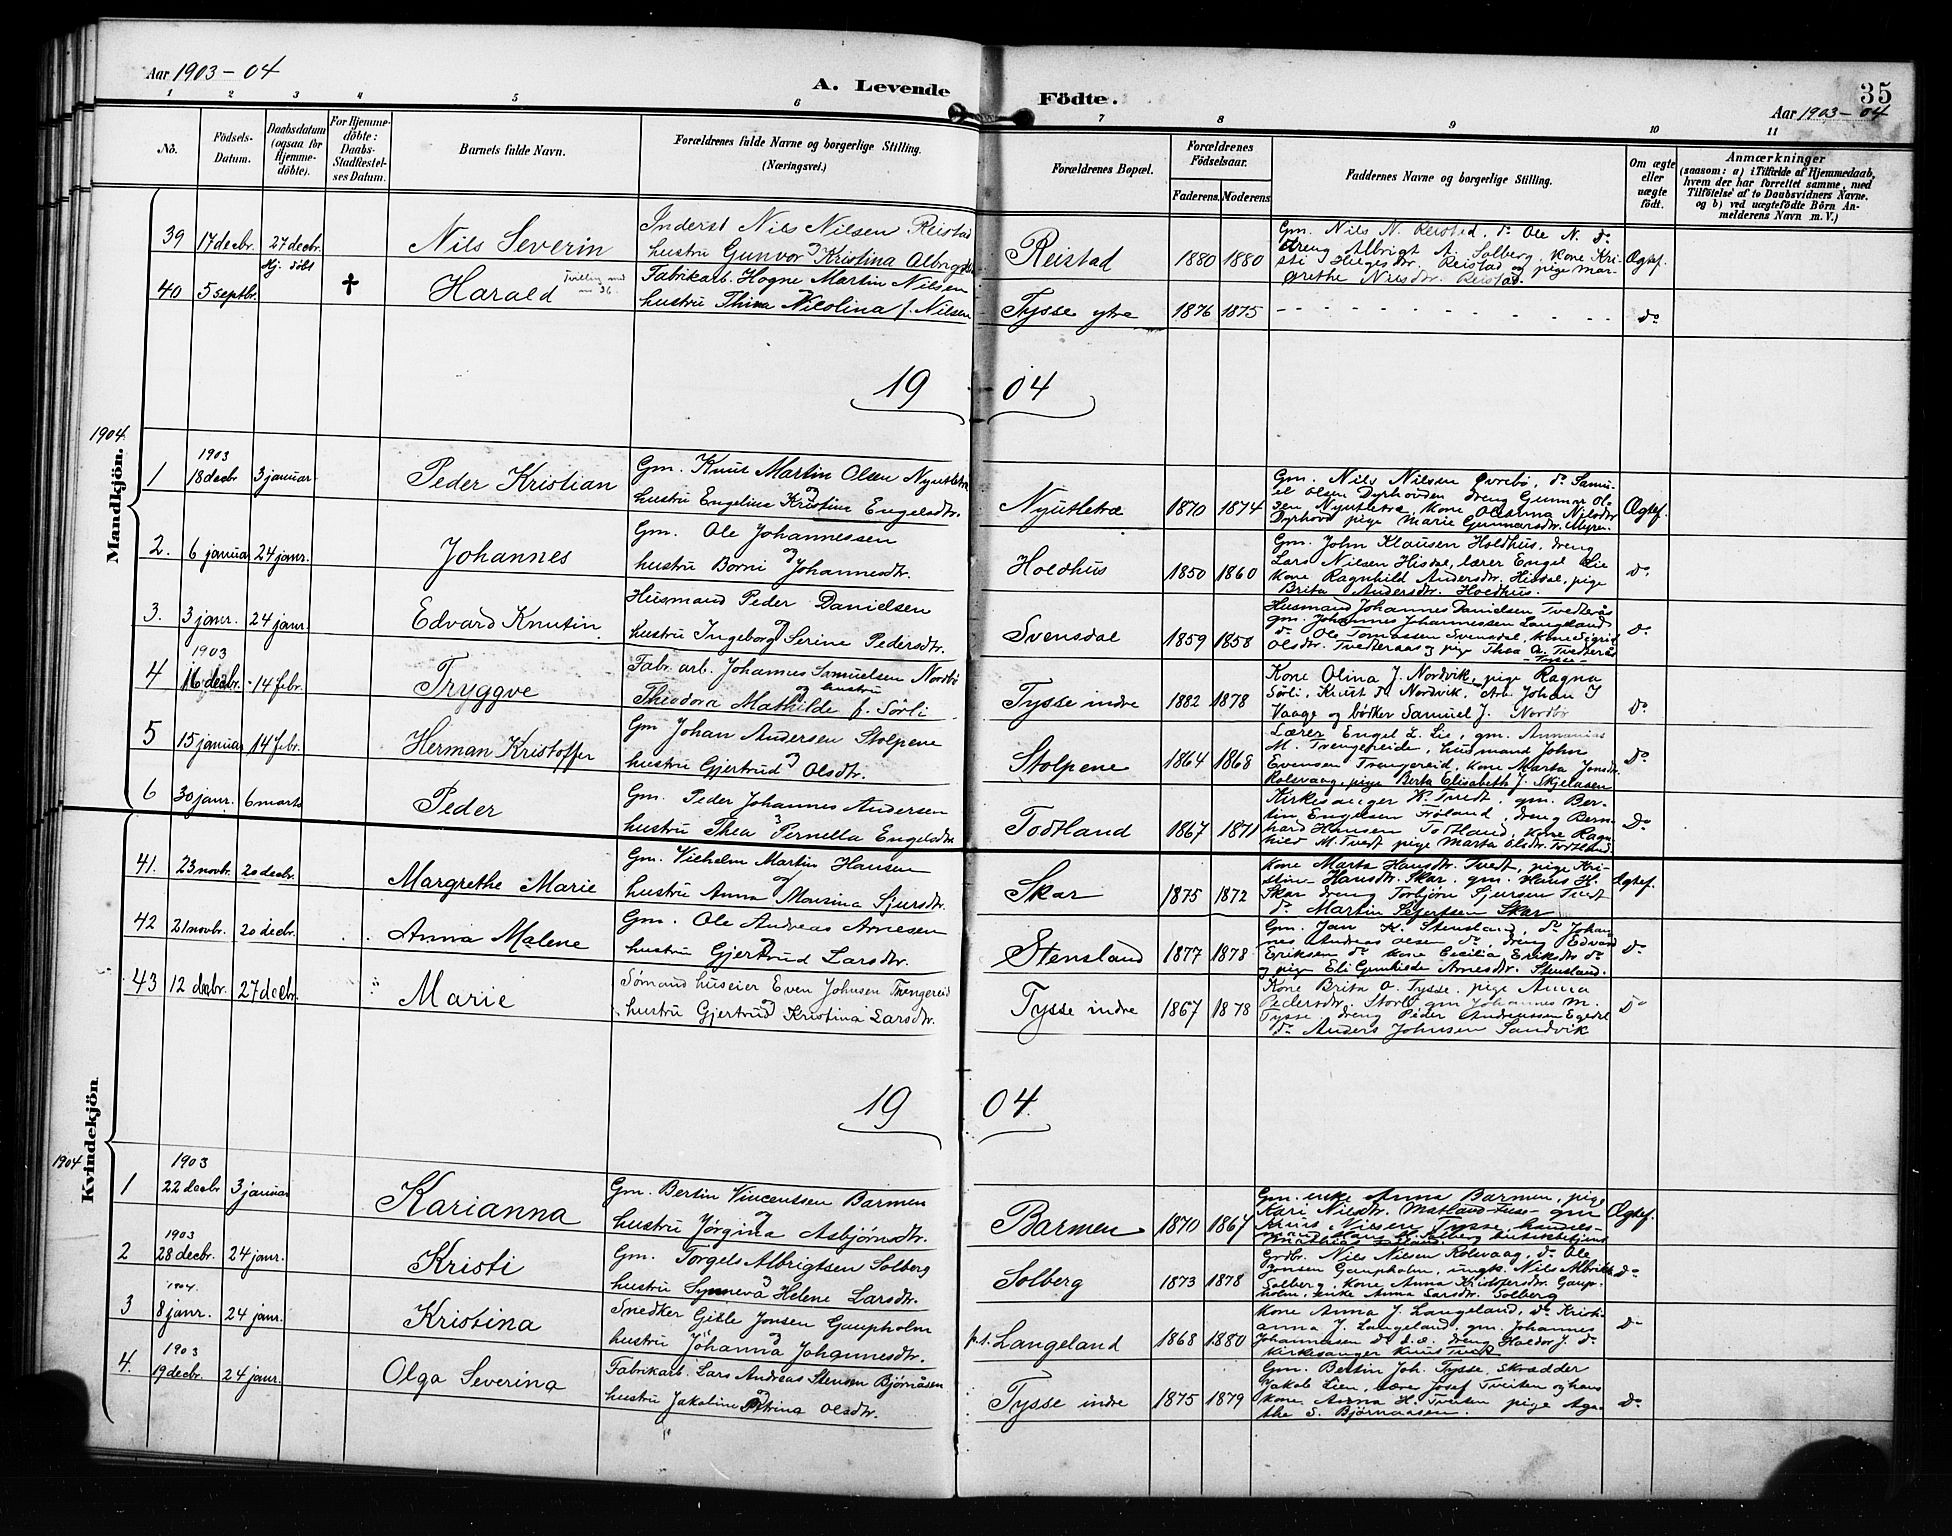 Aar 1903-04
A. Levende
Födte.
35
Aar 1903-04
1 2 3 4 5 6 7 8 9 10 11
No.
Födsels-Datum.
Daabsdatum (ogsaa for Hjemmedöbte).
For Hjemmedöbte: Daabs-Stadfæstelses Datum.
Barnets fulde Navn.
Forældrenes fulde Navne og borgerlige Stilling.
(Næringsvei.)
Forældrenes Bopæl.
Forældrenes Födselsaar.
Faderens. Moderens.
Faddernes Navne og borgerlige Stilling.
Om ægte eller uægte födt.
Anmærkninger
(saasom: a) i Tilfælde af Hjemmedaab, hvem der har forrettet samme, med Tilföielse af to Daabsvidners Navne, og b) ved uægtefödte Börn Anmelderens Navn m. V.)
Mandkjön.
39 17 decbr. 27 decbr. Nils Severin
Inderst Nils Nilsen Reistad
hustru Gunvor Kristina
Reistad 1880 1880
Gm. Nils N. Reistad, do Ole N. do
dreng Albrigt A. Solberg, kone Kri-
sti Helgesdr. Reistad og pige Mar-
grethe Nilsdr. Reistad.
Ægtef.
40 5 septbr. Hj. döbt † Harald
Tvilling med no 36.
Fabrikarb. Hogne Martin Nilsen
hustru Thina Nicolina f. Nilsen
Tysse ytre 1876 1875 do
19 04
1904.
1 1903 18 decbr 3 januar Peder Kristian
Gm. Knut Martin Olsen Nyutletræ
hustru Engeline Kristine Engelsdtr.
Nyutletræ 1870 1874
Gm. Nils Nilsen Øvrebø, do Samu-
el Olsen Dyrhovden dreng Gunnar Ol-
sen Nyutletræ, kone Oleanna Nilsdr
Dyrhovd pige Marie Gunnarsdtr.
Ægtef.
2. 6 januar 24 janr. Johannes
Gm. Ole Johannessen
hustru Borni Johannesdtr.
Holdhus 1850 1860
Gm. John Klausen Holdhus, dreng
Lars Nilsen Hisdal, lærer Engel Lie
kone Ragnhild Andersdtr. Hisdal, pige
Brita Andersdtr. Holdhus.
do
3. 3 janr. 24 janr. Edvard Knutin
Husmand Peder Danielsen
hustru Ingeborg Serine Pedersdtr.
Svensdal 1859 1858
Husmand Johannes Danielsen Tvedterås
gm. Johannes Johannessen Langeland
do Ole Tomassen Svensdal, kone Sigrid
Olsdtr. Tvedteraas og pige Thea O. Tvedterås
Tysse
do
4 1903 16 decbr. 14 febr. Tryggve
Fabr. arb. Johannes Samuelsen Nordbø
og hustru
Theodora Mathilde f. Sörli
Tysse indre 1882 1878
Kone Olina J. Nordvik, pige Ragna
Sörli, Knut do Nordvik, Johan J
Vaage og bödker Samuel J. Nordbø
do
5 15 januar 14 febr. Herman Kristoffer
Gm Johan Andersen Stolpene
hustru Gjertrud Olsdtr.
Stolpene 1864 1868
Lærer Engel L. Lie, gm. Annanias
M. Trengereide, husmand John
Evensen Trengereid, kone Marta Jonsdtr.
Rolsvaag, pige Berta Elisabeth J. Skjelaasen
do
6 30 janr. 6 marts Peder
Gm. Peder Johannes Andersen
hustru Thea Pernella Engelsdtr
Todtland 1867 1871
Kirkesanger K. Tvedt, gm. Ber-
tin Engelsen Föland, dreng Bern-
hard Hansen Todtland, kone Ragn-
hild M. Tvedt pige Marta Olsdtr. Todtland
do
Kvindekjön
41. 23 novbr. 20 decbr. Margrethe Marie
Gm. Vilhelm Martin Hansen
og
hustru Anna Monsina Sjursdtr.
Skar 1875 1872
kone Marta Hansdtr. Tvedt, pige Kri-
stine Hansdtr. Skar. gm. Hans H.
Skar dreng Torbjörn Sjursen Tvedt
do Martin Sjurtsen Skar
Ægtef.
42 21 novbr. 20 decbr. Anna Malene
Gm. Ole Andreas Arnesen
hustru Gjertrud Larsdtr.
Stensland 1877 1878
Gm. Jan K. Stensland, do Johan-
nes Andreas Olsen do, dreng Edvard
Eriksen do kone Cecilia Eriksdtr do
og pige Eli Gunhilde Arnesdtr. Stensland.
do
43 12 decbr. 27 decbr. Marie
Sömand huseier Even Johnsen Trengereid
hustru Gjertrud Kristina Larsdtr.
Tysse indre 1867 1878
Kone Brita O. Tysse, pige Anna
Pedersdtr. gm Johannes M.
Tysse, dreng Peder Andreassen Egedal
do Anders Johnsen Sandvik
do
19 04.
1904
1 1903 22 decbr 3 januar Karianna
Gm. Bertin Vincentsen Barmen
hustru Jörgina Asbjörnsdtr.
Barmen 1870 1867
Gm. enke Anna Barmen, pige
Kari Nilsdtr. gm
Knut Nilsen Tysse, handels-
mand Hans M. Solberg
Ægtef.
2 1903 28 decbr. 24 janr. Kristi
Gm. Torgels Albrigtsen Solberg
hustru Synneva Helene Larsdtr.
Solberg 1873 1878
Grdbr. Nils Nilsen Rolsvaag, do Ole
Jonsen Gaupholm, ungk. Nils Albrikts.
Solberg, kone Anna Kristofersdtr. Gaup-
holm, enke Anna Larsdtr. Solberg
do
3 1904. 8 janr. 24 janr. Kristina
Snedker Gisle Jonsen Gaupholm
hustru Johanna Johannesdtr.
p.t. Langeland 1868 1880
kone Anna J. Langeland, do Kristi-
anna J. Langeland, gm. Johannes
Johannesen do dreng Haldor J. do
kirkesanger Knut Tvedt
do
4. 1903 19 decbr. 24 janr. Olga Severina
Fabrikarb. Lars Andreas Stensen Bjørnåsen
hustru Jakobine Petrina Olsdtr.
Tysse indre 1875 1879
Gm. Bertin Joh. Tysse, skrædder
Jakob Lien, Josef Tveiten og hans
kone Anna H. Tveiten pige Aga-
the S. Bjørnaasen.
do